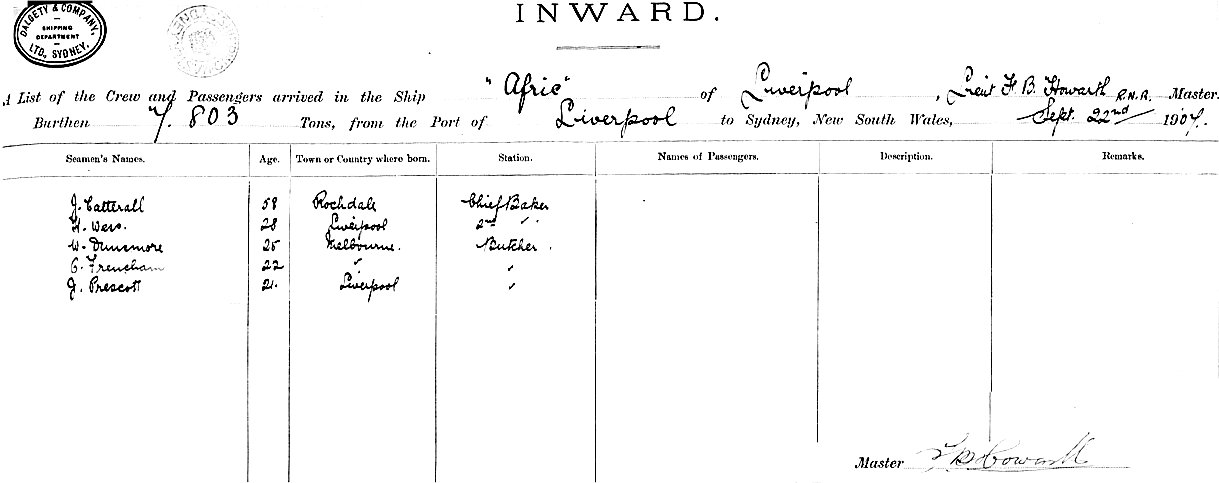 DALGETY & COMPANY,
SHIPPING
DEPARTMENT
LTD, SYDNEY.
INWARD.
A List of the Crew and Passengers arrived in the Ship "Afric" of Liverpool, Lieut F. B. Howarth R.N.R. Master.
Burthen 7.803 Tons, from the Port of Liverpool to Sydney, New South Wales, Sept. 22nd 1907.
Seamen's Names. Age. Town or Country where born. Station. Names of Passengers. Description. Remarks.
J. Catterall 58 Rochdale Chief Baker
H. 28 Liverpool 2nd "
W. Dunsmore 25 Melbourne. Butcher.
Frencham 22 " "
J. Prescott 21. Liverpool "
Master